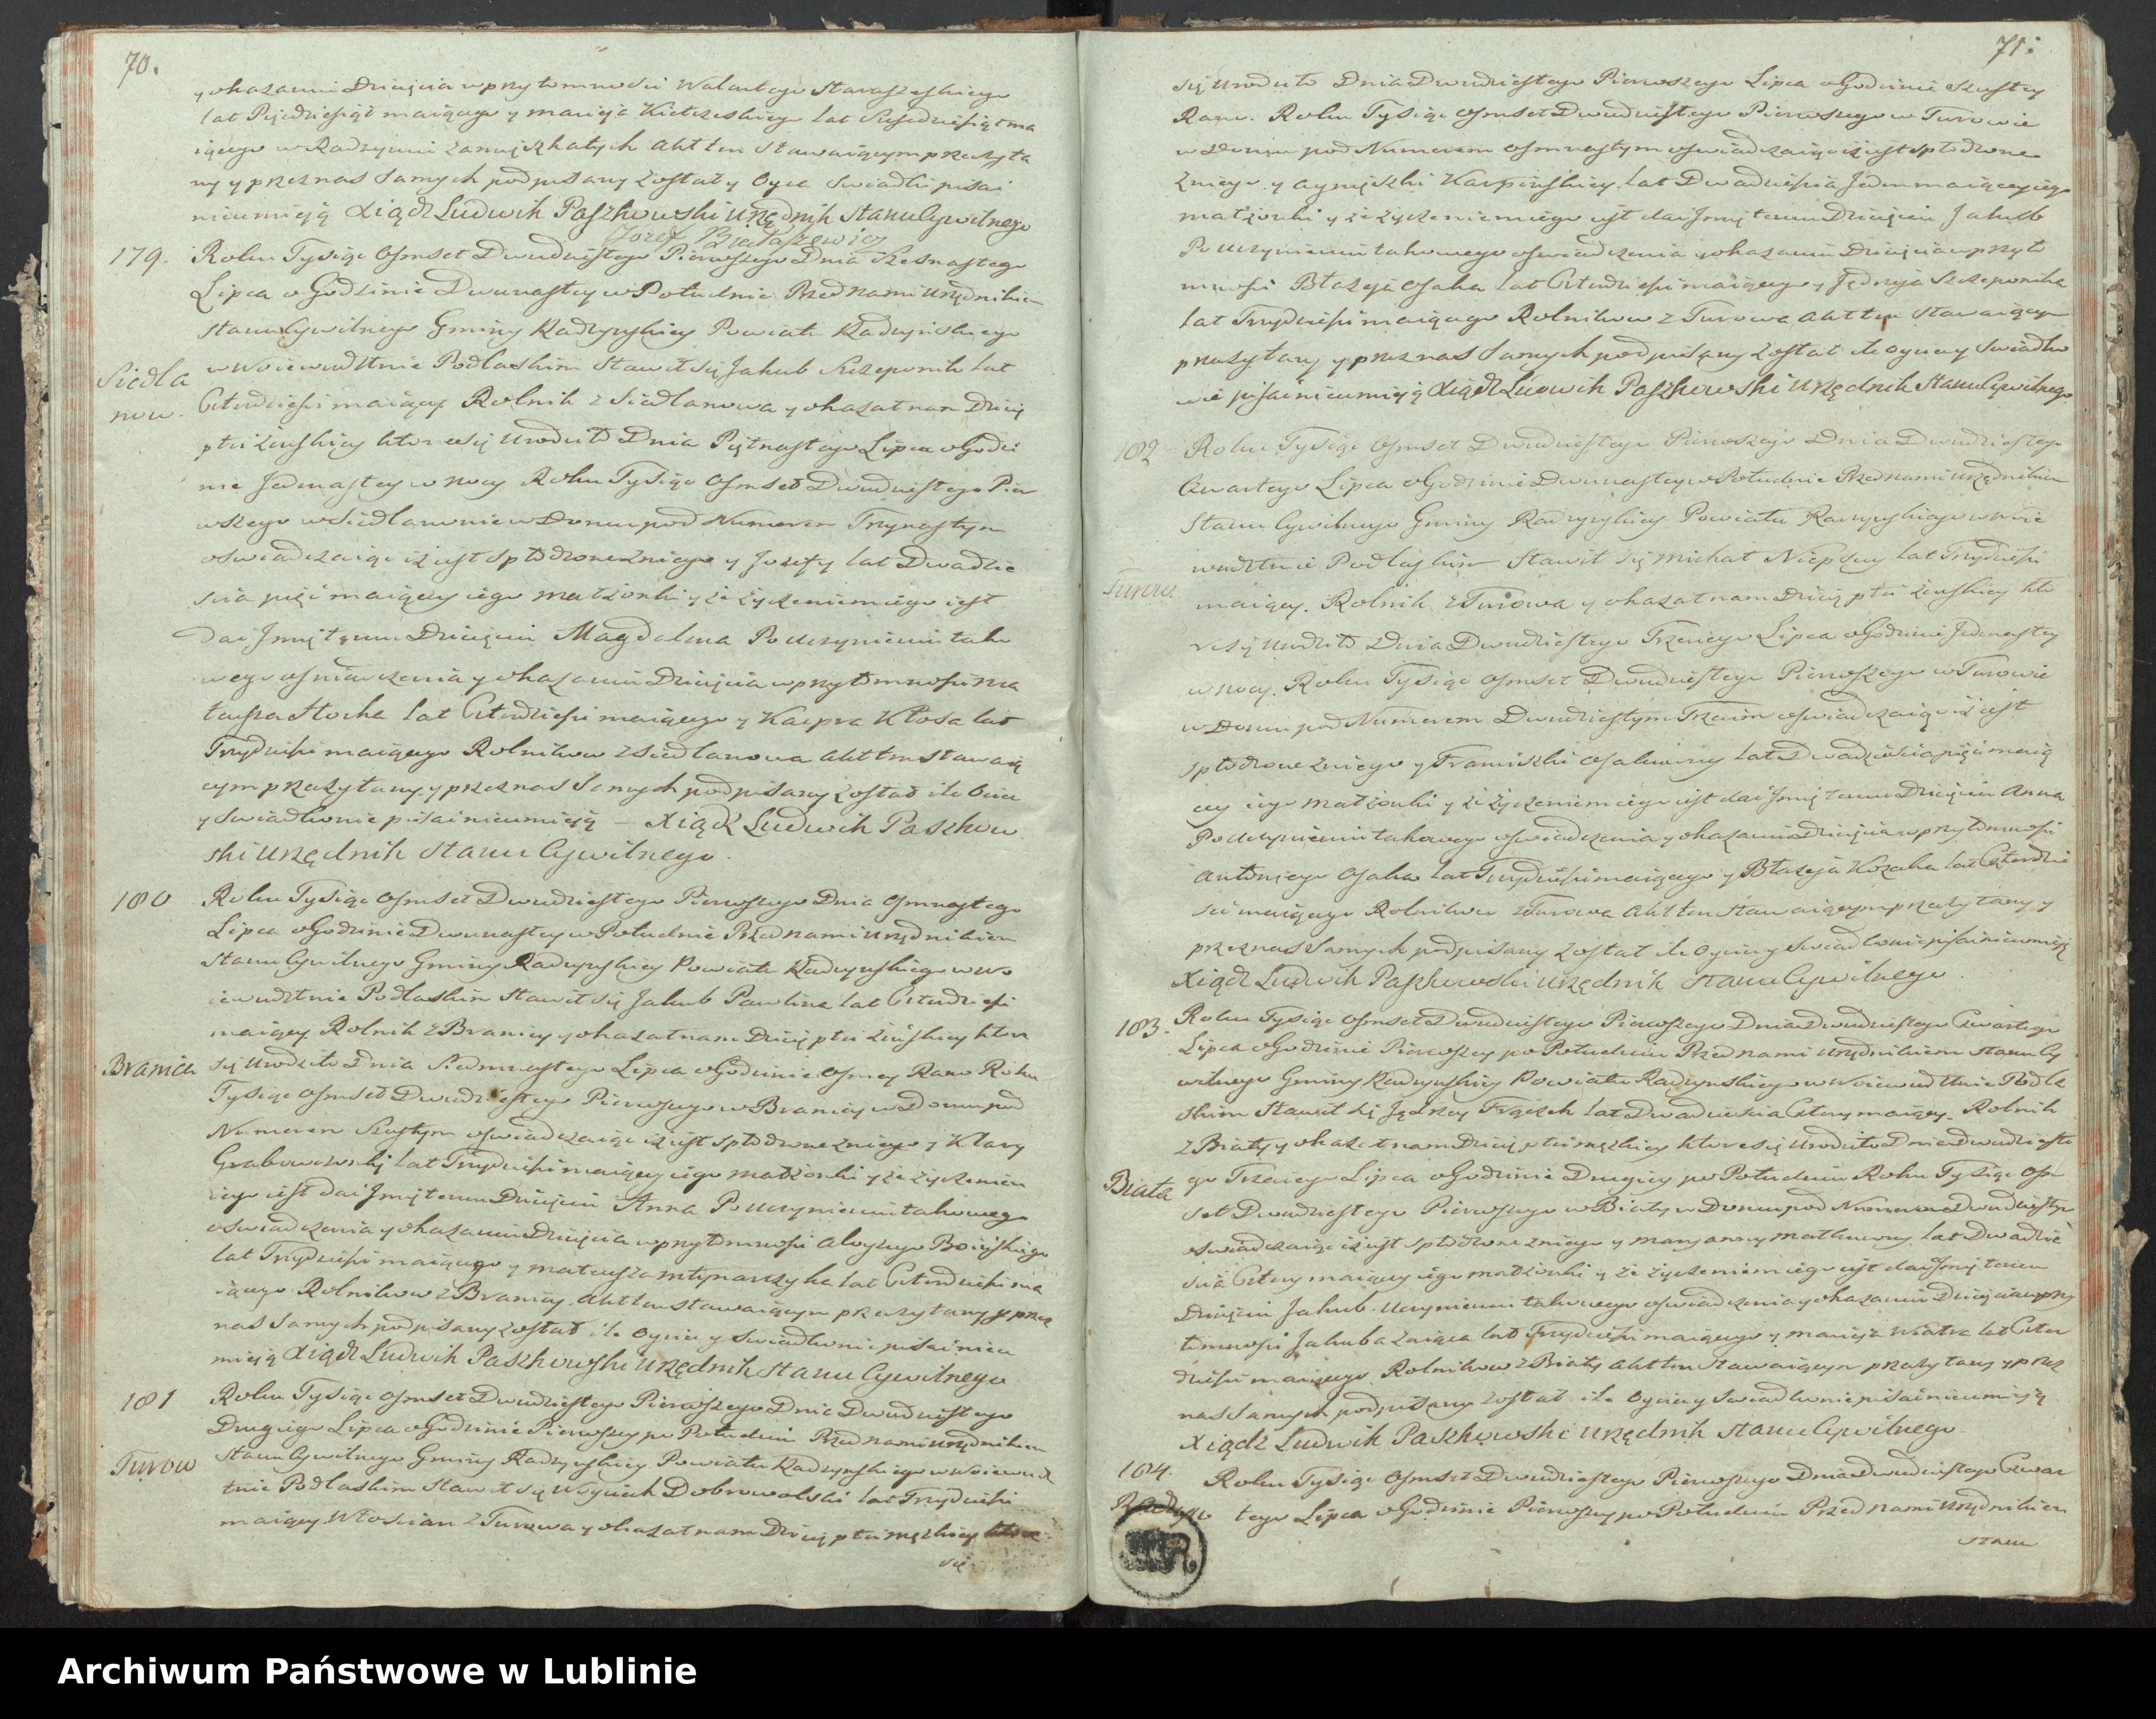 70.
y okazaniu Dziecięcia w przytomności Walentego Staroszeskiego
lat Pięćdziesiąt maiącego y Macieja Kiełczeskiego lat Sześćdziesiąt ma
iącego w Radzyniu Akt ten Stawaiącym przeczyta
ny y przez nas Samych podpisany został y Oyca Swiadki pisać
nieumieją Xiądz Ludwik Paszkowski Urzędnik Stanu Cywilnego
Jozef
179. Roku Tysiąc Osmset Dwudziestego Pierwszego Dnia Szesnastego
Lipca o Godzinie Dwunastey w Południe Przed nami Urzędnikiem
Stanu Cywilnego Gminy Radzyńskiey Powiatu Radzyńskiego
Siedla
now.
w Woiewudztwie Podlaskim Stawił się Jakub Szczepanik lat
Czterdzieści maiący Rolnik z Siedlanowa y okazał nam Dziecię
płci żeńskiey ktore się Urodziło Dnia Piętnastego Lipca o Godzi
nie Jedenastey w nocy Roku Tysiąc Osmset Dwudziestego Pier
wszego w Siedlanowie w Domu pod Numerem Trzynastym
oswiadczaiąc iż iest spłodzone z niego y Jozefy lat Dwadzie
scia pięć maiącey iego małżonki y że życzeniem iego iest
dać Imię temu Dziecięciu Magdalena Po uczynieniu tako
wego oswiadczenia y okazaniu Dziecięcia w przytomności Ma
teusza Stocha lat Czterdzieści maiącego y Kacpra Kłosa lat
Trzydzieści maiącego Rolnikow z Siedlanowa Akt ten stawaią
cym przeczytany y przez nas Samych podpisany został ile Ociec
y Swiadkowie pisać nieumieją – Xiądz Ludwik Paszkow
ski Urzędnik Stanu Cywilnego.
180 Roku Tysiąc Osmset Dwudziestego Pierwszego Dnia Osmnastego
Lipca o Godzinie Dwunastey w Południe Przed nami Urzędnikiem
Stanu Cywilnego Gminy Radzyńskiey Powiatu Radzyńskiego w Wo
iewudztwie Podlaskim Stawił się Jakub Pawlina lat Czterdzieści
maiący Rolnik z Branicy y okazał nam Dziecię płci żeńskiey ktore
Branica się Urodziło Dnia Siedmnastego Lipca o Godzinie Osmey Rano Roku
Tysiąc Osmset Dwudziestego Pierwszego w Branicy w Domu pod
Numerem Szustym oswiadczaiąc iż iest spłodzone z niego y Klary
Grabowskiey lat Trzydzieści maiącey iego małżonki y że życzeniem
iego iest dać Imię temu Dziecięciu Anna Po uczynieniu takowego
oswiadczenia y okazaniu Dziecięcia w przytomności Aloyzego
lat Trzydzieści maiącego y Mateusza Młynarczyka lat Czterdzieści ma
iącego Rolnikow z Branicy Akt ten stawaiącym przeczytany y przez
nas Samych podpisany został ile Oyciec y Swiadkowie pisać nieu
mieją Xiądz Ludwik Paszkowski Urzędnik Stanu Cywilnego
181 Roku Tysiąc Osmset Dwudziestego Pierwszego Dnia Dwudziestego
Drugiego Lipca o Godzinie Pierwszey po Południu Przed nami Urzędnikiem
Turow Stanu Cywilnego Gminy Radzyńskiey Powiatu Radzyńskiego w Woiewud
ztwie Podlaskim Stawił się Woyciech Dobrowolski lat Trzydzieści
maiący Włoscian z Turowa y okazał nam Dziecię płci męzkiey ktore
się
71.
się Urodziło Dnia Dwudziestego Pierwszego Lipca o Godzinie Szustey
Rano. Roku Tysiąc Osmset Dwudziestego Pierwszego w Turowie
w Domu pod Numerem Osmnastym oswiadczaiąc iż iest spłodzone
z niego y Agnieszki Karpińskiey lat Dwadzieścia Jeden maiącey iego
małżonki y że życzeniem iego iest dać Imię temu Dziecięciu Jakub
Po uczynieniu takowego oswiadczenia y okazaniu Dziecięcia w przyto
mności Błażeja Osaka lat Czterdzieści maiącego y Jędrzeja Szczepanika
lat Trzydzieści maiącego Rolnikow z Turowa Akt ten Stawaiącym
przeczytany y przez nas Samych podpisany został ile Oyciec y Swiadko
wie pisać nieumieją Xiądz Ludwik Paszkowski Urzędnik Stanu Cywilnego
182 Roku Tysiąc Osmset Dwudziestego Pierwszego Dnia Dwudziestego
Czwartego Lipca o Godzinie Dwunastey w Południe Przed nami Urzędnikiem
Stanu Cywilnego Gminy Radzyńskiey Powiatu Radzyńskiego w Woie
wudztwie Podlaskim Stawił się Michał lat Trzydzieści
Turow. maiący. Rolnik z Turowa y okazał nam Dziecię płci żeńskiey kto
re się Urodziło Dnia Dwudziestego Trzeciego Lipca o Godzinie Jedenastey
w nocy. Roku Tysiąc Osmset Dwudziestego Pierwszego w Turowie
w Domu pod Numerem Dwudziestym Trzecim oswiadczaiąc iż iest
spłodzone z niego y Franciszki Osakowny lat Dwadzieścia pięć maią
cey iego małżonki y że życzeniem iego iest dać Imię temu Dziecięciu Anna
Po uczynieniu takowego oswiadczenia y okazaniu Dziecięcia w przytomności
Antoniego Osaka lat Trzydzieści maiącego y Błażeja Kozaka lat Czterdzie
sci maiącego Rolnikow z Turowa Akt ten Stawaiącym przeczytany y
przez nas Samych podpisany został ile Oyciec y Swiadkowie pisać nieumieją
Xiądz Ludwik Paszkowski Urzędnik Stanu Cywilnego.
183. Roku Tysiąc Osmset Dwudziestego Pierwszego Dnia Dwudziestego Czwartego
Lipca o Godzinie Pierwszey po Południu Przed nami Urzędnikiem Stanu Cy
wilnego Gminy Radzyńskiey Powiatu Radzyńskiego w Woiewudztwie Podla
skim Stawił się Jędrzey lat Dwadzieścia Cztery maiący. Rolnik
z Biały y okazał nam Dziecię płci męzkiey ktore się Urodziło Dnia Dwudzieste
Biała go Trzeciego Lipca o Godzinie Drugiey po Południu Roku Tysiąc Osm
set Dwudziestego Pierwszego w Biały w Domu pod Numerem Dwudziestym
oswiadczaiąc iż iest spłodzone z niego y Maryanny lat Dwadzie
scia Cztery maiącey iego małżonki y że życzeniem iego iest dać Imię temu
Dziecięciu Jakub. Uczynieniu takowego oswiadczenia y okazaniu Dziecięcia w przy
tomności Jakuba Zaiąca lat Trzydzieści maiącego y Macieja Wiatra lat Czter
dzieści maiącego Rolnikow z Biały Akt ten Stawaiącym przeczytany y przez
nas Samych podpisany został ile Oyciec y Swiadkowie pisać nieumieją
Xiądz Ludwik Paszkowski Urzędnik Stanu Cywilnego
184. Roku Tysiąc Osmset Dwudziestego Pierwszego Dnia Dwudziestego Czwar
Radzyn tego Lipca o Godzinie Pierwszey po Południu Przed nami Urzędnikiem
Stanu
Archiwum Państwowe w Lublinie